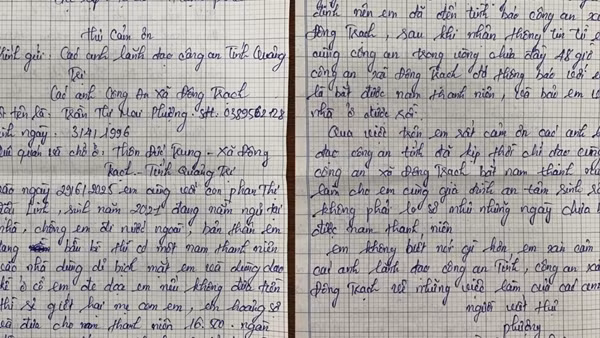 Thư cảm ơn
Kính gửi: Các anh lãnh đạo công an Tỉnh Quảng
Trị
Các anh Công An xã Đông Trạch
tên là: Trần Thị Mai Phương. SĐT.
sinh ngày: 3/4/1996
quán và chỗ ở: thôn Đức Trung - xã Đông
Trạch - Tỉnh Quảng Trị
Vào ngày 22/6/2025 em cùng với con phan Thị
Linh, sinh năm 2021 đang nằm ngủ tại
nhà, chồng em đi nước ngoài, bản thân em
đang bầu bí thì có một nam thanh niên
vào nhà dùng bịch mặt em và dùng dao
kề ở cổ em đe dọa em nếu không đưa tiền
thì sẽ giết hai mẹ con em, em hoảng sợ
và đưa cho nam thanh niên 16.500. ngàn
nên em đã đến trình báo công an xã
Đông Trạch, sau khi nhận thông tin từ em
cùng công an trong vòng chưa đầy 48 giờ
công an xã Đông Trạch đã thông báo với em
là bắt được nam thanh niên, và bảo em về
nhà ở được rồi.
Qua việt trên em rất cảm ơn các anh
đạo công an tỉnh đã kịp thời chỉ đạo cùng
công an xã Đông Trạch bắt nam thanh
làm cho em cùng gia đình an tâm sinh
không phải lo sợ như những ngày chưa
được nam thanh niên.
em không biết nói gì hơn, em xin cảm
các anh lãnh đạo công an Tỉnh, công an xã
Đông Trạch về những việt làm của các anh
người viết thư
phương